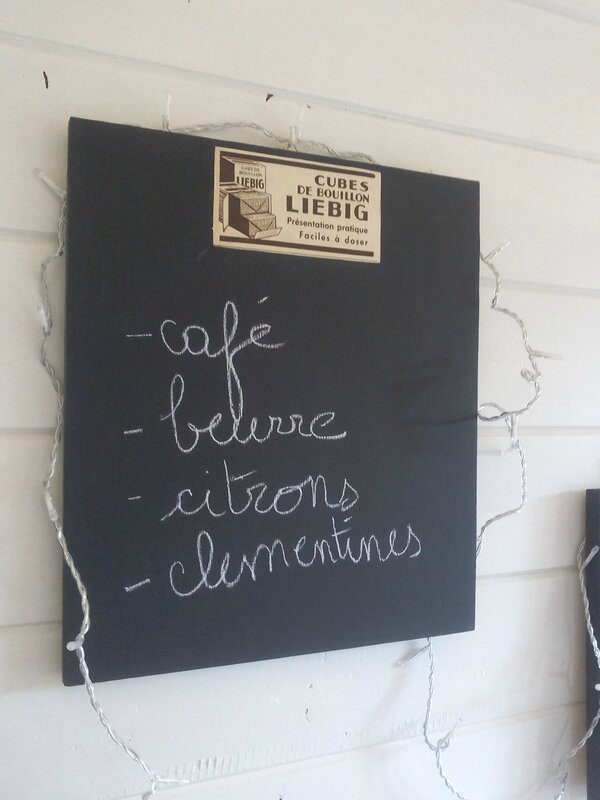 CUBES DE
BOUILLON
LIEBIG
CUBES
DE BOUILLON
LIEBIG
Présentation pratique
Faciles à doser
- café
- beurre
- citrons
- clementines